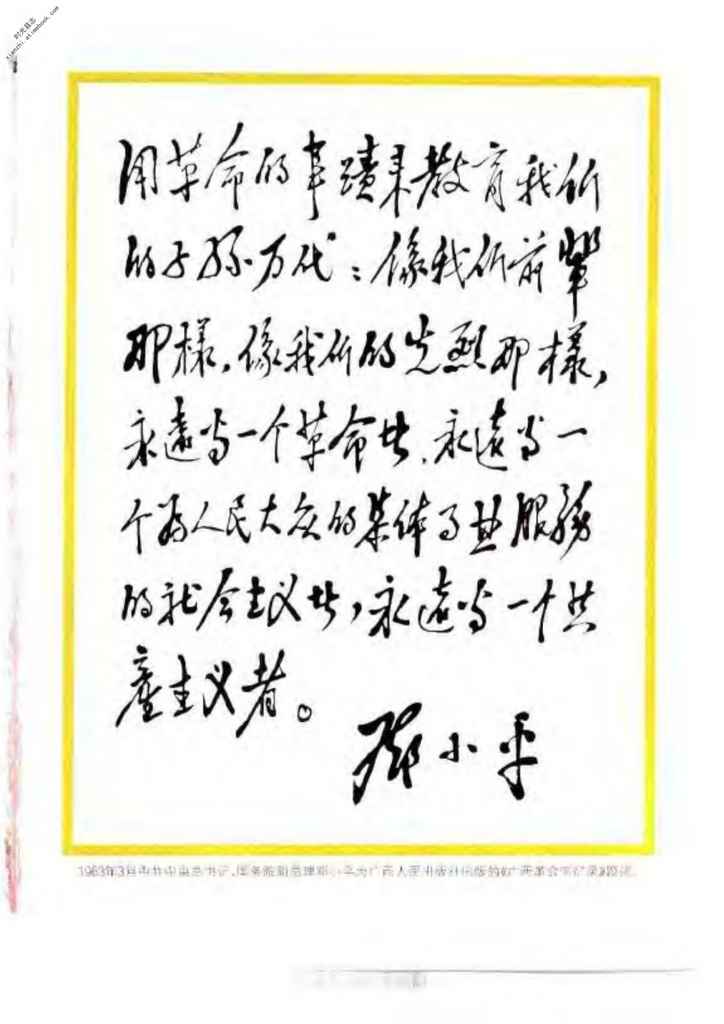 时光日志
用革命的事蹟来教育我们
的子孙万代：像我们前辈
那樣，像我们的先烈那樣，
永遠当一个革命者，永遠当一
个为人民大众的集体事业服務
的社会主义者，永遠当一个共
產主义者。
邓小平
1963年3月中共中央总书记、国务院副总理邓小平为广西人民出版社出版的《广西革命回忆录》题词。